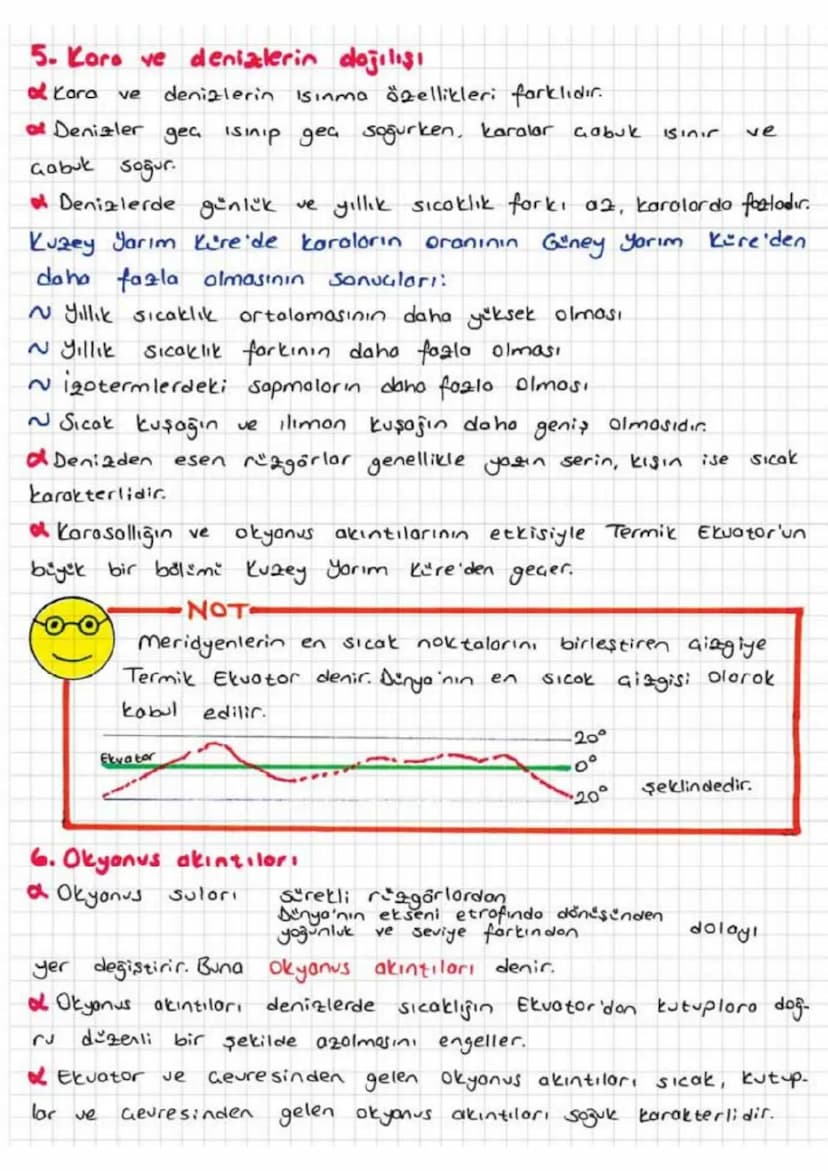 5. Kara ve denizlerin dağılışı
Kara ve denizlerin ısınma özellikleri farklıdır.
Denizler geç ısınıp geç soğurken, karalar çabuk ısınır ve
çabuk soğur.
Denizlerde günlük ve yıllık sıcaklık farkı az, karalarda fazladır.
Kuzey Yarım Küre'de karaların oranının Güney Yarım Küre'den
daha fazla olmasının sonuçları:
~ Yıllık sıcaklık ortalamasının daha yüksek olması
~ Yıllık sıcaklık farkının daha fazla olması
~ İzotermlerdeki sapmaların daha fazla olması
~ Sıcak kuşağın ve ılıman kuşağın daha geniş olmasıdır.
Denizden esen rüzgârlar genellikle yazın serin, kışın ise sıcak
karakterlidir.
Karasallığın ve okyanus akıntılarının etkisiyle Termik Ekvator'un
büyük bir bölümü Kuzey Yarım Küre'den geçer.
NOT
Meridyenlerin en sıcak noktalarını birleştiren çizgiye
Termik Ekvator denir. Dünya'nın en sıcak çizgisi olarak
kabul edilir.
20°
Ekvator
0°
20°
şeklindedir.
6. Okyanus akıntıları
Okyanus suları sürekli rüzgârlardan
Dünya'nın ekseni etrafında dönüşünden
yoğunluk ve seviye farkından dolayı
yer değiştirir. Buna Okyanus akıntıları denir.
Okyanus akıntıları denizlerde sıcaklığın Ekvator'dan kutuplara doğ-
ru düzenli bir şekilde azalmasını engeller.
Ekvator ve çevresinden gelen okyanus akıntıları sıcak, kutup-
lar ve çevresinden gelen okyanus akıntıları soğuk karakterlidir.